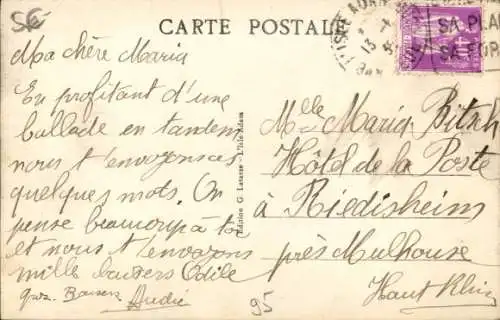 CARTE POSTALE
Ma chère Maria
En profitant d'une
ballade en tandem
nous t'envoyons ces
quelques mots. On
pense beaucoup à toi
et nous t'envoyons
mille baisers Odile
gros. Baisers André
Edition G. Latasse - L'Isle-Adam
SA PLA
SA FOR
Mlle Maria Bitsch
Hôtel de la Poste
à Riedisheim
près Mulhouse
Haut Rhin
95